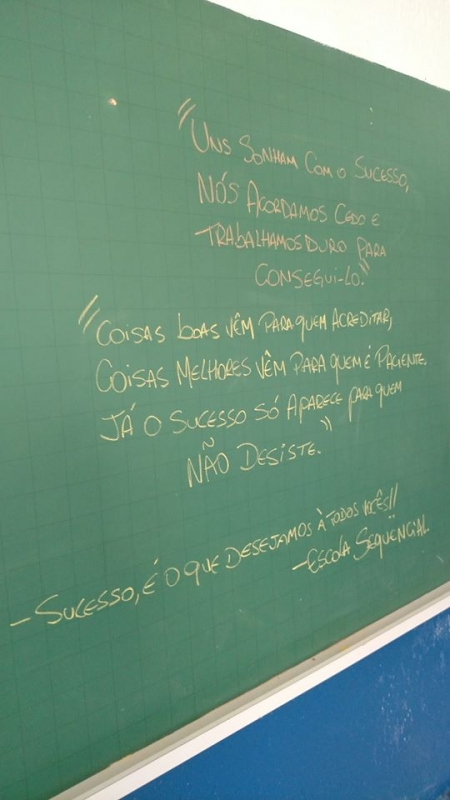 "UNS SONHAM COM O SUCESSO,
NÓS ACORDAMOS CEDO E
TRABALHAMOS DURO PARA
CONSEGUI-LO."
"COISAS BOAS VÊM PARA QUEM ACREDITAR,
COISAS MELHORES VÊM PARA QUEM É PACIENTE,
JÁ O SUCESSO SÓ APARECE PARA QUEM
NÃO DESISTE."
- SUCESSO, É O QUE DESEJAMOS À TODOS VOCÊS!!
- ESCOLA SEQÜENCIAL.